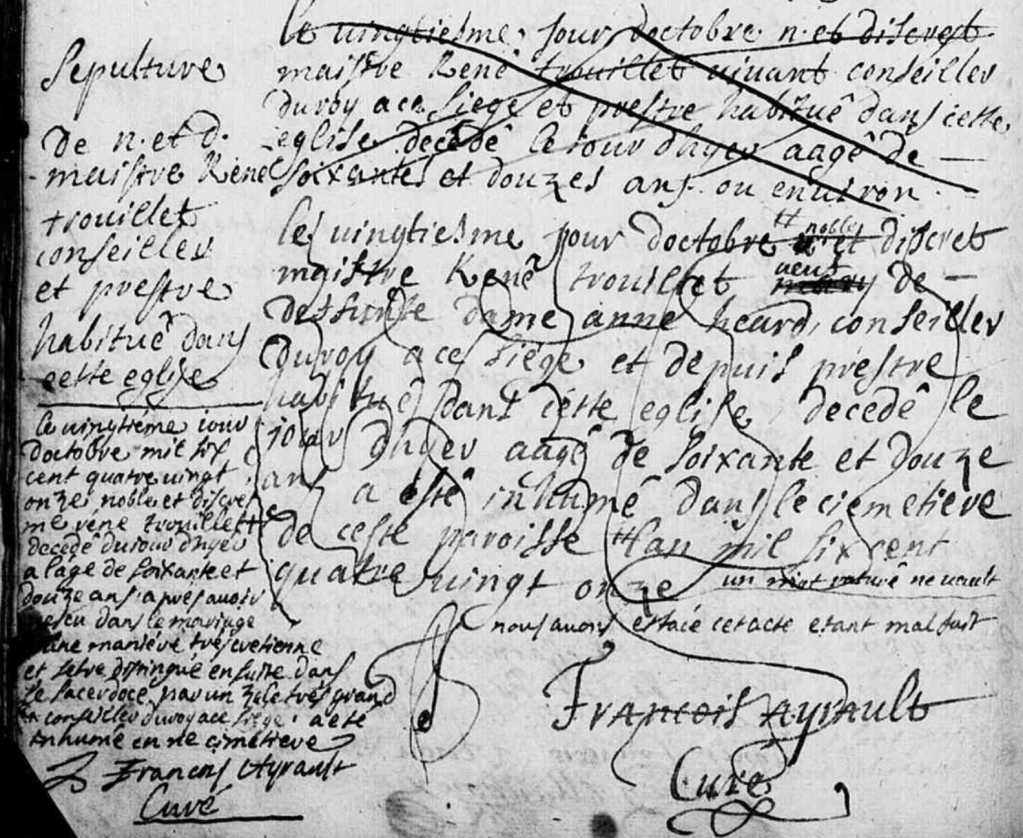 Sepulture
De n. et d.
maistre René
trouillet
conseiller
et prestre
habitué dans
cette eglise
le vingtiéme iour
doctobre mil six
cent quatre vingt
onze noble et discret
me réné trouillet tt
decedé du iour dhyer
a lage de soixante et
douze ans apres avoir
vescu dans le mariage
dune maniére tres cretienne
et sétre distingué ensuite dans
le sacerdoce par un zele tres grand
tt conseiller du roy a ce siége a été
inhumé en ne cimétiere
François Ayrault
Curé
le vingtiesme jour doctobre n. et discret
maistre René trouillet vivant conseiller
du roy a ce siege et prestre habitué dans cette
eglise decedé le iour dhyer aagé de
soixantes et douzes ans ou environ
le vingtiesme jour doctobre tt noble et discret
maistre René trouillet veuf de
deffunte dame anne heard, conseiller
du roy a ce siége et depuis prestre
habitué dans cette eglise decedé le
iour dhyer aagé de soixante et douze
ans a esté inhumé dans le ciemetiere
de ceste paroisse tt lan mil six cent
quatre vingt onze un mot raturé ne vault
nous avons effacé cet acte etant mal fait
François Ayrault
Curé